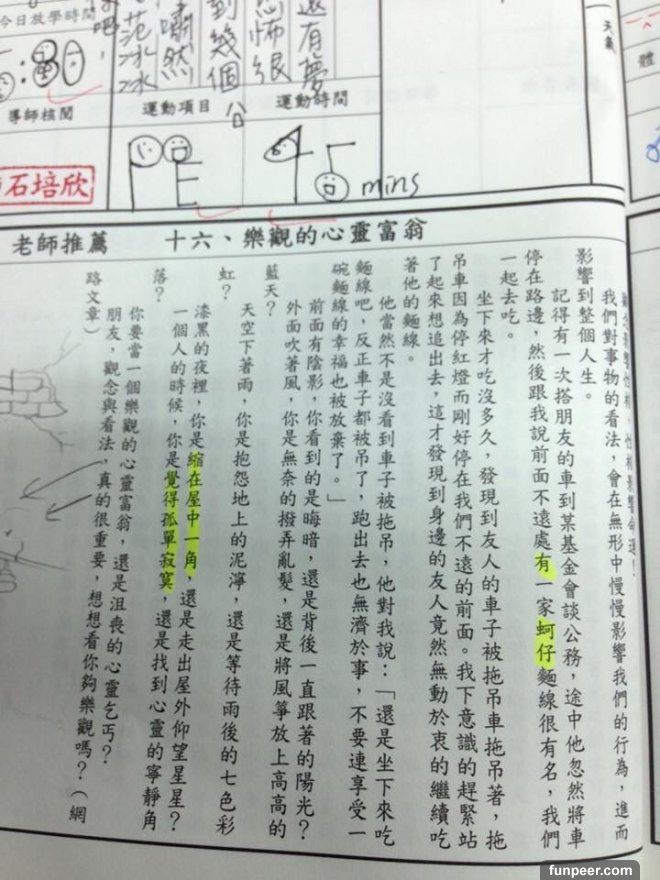 天氣
體
還有慶
恐怖很
到幾個公
嘯然
今日放學時間
5:30
導師核閱
石培欣
運動項目
運動時間
PE
45 mins
老師推薦
十六、樂觀的心靈富翁
性格影響命運!
我們對事物的看法,會在無形中慢慢影響我們的行為,進而
影響到整個人生。
記得有一次搭朋友的車到某基金會談公務,途中他忽然將車
停在路邊,然後跟我說前面不遠處有一家蚵仔麵線很有名,我們
一起去吃。
坐下來才吃沒多久,發現到友人的車子被拖吊車拖吊著,拖
吊車因為停紅燈而剛好停在我們不遠的前面。我下意識的趕緊站
了起來想追出去,這才發現到身邊的友人竟然無動於衷的繼續吃
著他的麵線。
他當然不是沒看到車子被拖吊,他對我說:「還是坐下來吃
麵線吧,反正車子都被吊了,跑出去也無濟於事,不要連享受一
碗麵線的幸福也被放棄了。」
前面有陰影,你看到的是晦暗,還是背後一直跟著的陽光?
外面吹著風,你是無奈的撥弄亂髮,還是將風箏放上高高的
藍天?
天空下著雨,你是抱怨地上的泥濘,還是等待雨後的七色彩
虹?
漆黑的夜裡,你是縮在屋中一角,還是走出屋外仰望星星?
一個人的時候,你是覺得孤單寂寞,還是找到心靈的寧靜角
落?
你要當一個樂觀的心靈富翁,還是沮喪的心靈乞丐?
朋友,觀念與看法,真的很重要,想想看你夠樂觀嗎?(網
路文章)
funpeer.com